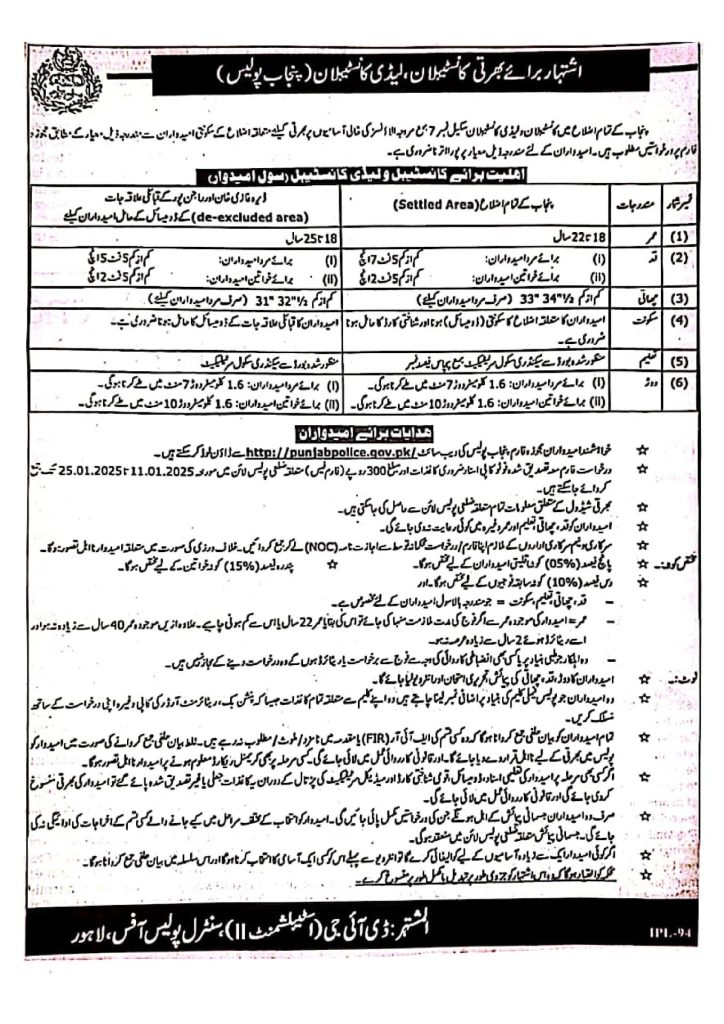 اشتہار برائے بھرتی کانسٹیبلان، لیڈی کانسٹیبلان (پنجاب پولیس)
پنجاب کے تمام اضلاع میں کانسٹیبلان ولیڈی کانسٹیبلان سکیل نمبر 7 بمع مروجہ الاؤنسز کی خالی آسامیوں پر بھرتی کیلئے متعلقہ اضلاع کے سکونتی امیدواران سے مندرجہ ذیل معیار کے مطابق مجوزہ
فارم پر درخواستیں مطلوب ہیں۔ امیدواران کے لئے مندرجہ ذیل معیار پر پورا اترنا ضروری ہے۔
اہلیت برائے کانسٹیبل ولیڈی کانسٹیبل (سول امیدوار)
نمبر شمار مندرجات پنجاب کے تمام اضلاع (Settled Area) ڈیرہ غازی خان اور راجن پور کے قبائلی علاقہ جات
(de-excluded area) کے ڈومیسائل کے حامل امیدواران کیلئے
(1) عمر 18 تا 22 سال 18 تا 25 سال
(2) قد (i) برائے مرد امیدواران: کم از کم 5 فٹ 7 انچ (i) برائے مرد امیدواران: کم از کم 5 فٹ 5 انچ
(ii) برائے خواتین امیدواران: کم از کم 5 فٹ 2 انچ (ii) برائے خواتین امیدواران: کم از کم 5 فٹ 2 انچ
(3) چھاتی کم از کم 33" 34½" (صرف مرد امیدواران کیلئے) کم از کم 31" 32½" (صرف مرد امیدواران کیلئے)
(4) سکونت امیدواران کا متعلقہ اضلاع کا سکونتی (ڈومیسائل) ہونا اور شناختی کارڈ کا حامل ہونا امیدواران کا قبائلی علاقہ جات کے ڈومیسائل کا حامل ہونا ضروری ہے۔
ضروری ہے۔
(5) تعلیم منظور شدہ بورڈ سے سیکنڈری سکول سرٹیفکیٹ بمع پچاس فیصد نمبر منظور شدہ بورڈ سے سیکنڈری سکول سرٹیفکیٹ
(6) دوڑ (i) برائے مرد امیدواران: 1.6 کلومیٹر دوڑ 7 منٹ میں طے کرنا ہوگی۔ (i) برائے مرد امیدواران: 1.6 کلومیٹر دوڑ 7 منٹ میں طے کرنا ہوگی۔
(ii) برائے خواتین امیدواران: 1.6 کلومیٹر دوڑ 10 منٹ میں طے کرنا ہوگی۔ (ii) برائے خواتین امیدواران: 1.6 کلومیٹر دوڑ 10 منٹ میں طے کرنا ہوگی۔
ھدایات برائے امیدواران
☆ خواہشمند امیدواران مجوزہ فارم پنجاب پولیس کی ویب سائٹ http://punjabpolice.gov.pk/ سے ڈاؤن لوڈ کر سکتے ہیں۔
☆ درخواست فارم معہ تصدیق شدہ فوٹو کاپی اسناد ضروری کاغذات اور مبلغ 300 روپے (فارم فیس) متعلقہ ضلعی پولیس لائن میں مورخہ 11.01.2025 تا 25.01.2025 تک جمع
کروائے جا سکتے ہیں۔
☆ بھرتی شیڈول کے متعلق معلومات تمام متعلقہ ضلعی پولیس لائن سے حاصل کی جا سکتی ہیں۔
☆ امیدواران کو قد، چھاتی، تعلیم اور عمر وغیرہ میں کوئی رعایت نہ دی جائے گی۔
☆ سرکاری و نیم سرکاری اداروں کے ملازم اپنا فارم/درخواست محکمانہ توسط سے اجازت نامہ (NOC) لے کر جمع کروائیں۔ خلاف ورزی کی صورت میں متعلقہ امیدوار نااہل تصور ہوگا۔
مختص کوٹہ:۔ ☆ پانچ فیصد (05%) کوٹہ اقلیتی امیدواران کے لیے مختص ہوگا۔ ☆ پندرہ فیصد (15%) کوٹہ خواتین کے لیے مختص ہوگا۔
☆ دس فیصد (10%) کوٹہ سابقہ فوجیوں کے لیے مختص ہوگا۔ اور
– قد، چھاتی، تعلیم، سکونت = جو مندرجہ بالا سول امیدواران کے لئے مخصوص ہے۔
– عمر = امیدوار کی موجودہ عمر سے اگر فوج کی مدت ملازمت منہا کی جائے تو اس کی بقایا عمر 22 سال یا اس سے کم ہونی چاہیے۔ علاوہ ازیں موجودہ عمر 40 سال سے زیادہ نہ ہو اور
اسے ریٹائرڈ ہوئے 2 سال سے زیادہ عرصہ نہ ہو۔
– وہ اہلکار جو طبی بنیاد پر یا کسی بھی انضباطی کاروائی کی وجہ سے فوج سے برخواست یا ریٹائرڈ ہوں گے وہ درخواست دینے کے مجاز نہیں ہیں۔
نوٹ:۔ ☆ امیدواران کا دوڑ، قد، چھاتی کی پیمائش، تحریری امتحان اور انٹرویو لیا جائے گا۔
☆ وہ امیدواران جو پولیس فیملی کلیم کی بنیاد پر اضافی نمبر لینا چاہتے ہیں وہ اپنے کلیم سے متعلقہ تمام کاغذات جیسا کہ پنشن بک، ریٹائرمنٹ آرڈر کی کاپی وغیرہ اپنی درخواست کے ساتھ
منسلک کریں۔
☆ تمام امیدواران کو بیان حلفی جمع کروانا ہوگا کہ وہ کسی قسم کی ایف آئی آر (FIR) یا مقدمہ میں نامزد/ملوث/مطلوب نہ رہے ہیں۔ غلط بیان حلفی جمع کروانے کی صورت میں امیدوار کو
پولیس میں بھرتی کے لیے نااہل قرار دے دیا جائے گا۔ اور قانونی کاروائی عمل میں لائی جائے گی۔ کسی مرحلہ پر بھی کریمنل ریکارڈ معلوم ہونے پر امیدوار نااہل تصور ہوگا۔
☆ اگر کسی بھی مرحلہ پر امیدوار کی تعلیمی اسناد، ڈومیسائل، قومی شناختی کارڈ اور میڈیکل سرٹیفکیٹ کی پڑتال کے دوران یہ کاغذات جعلی یا غیر تصدیق شدہ پائے گئے تو امیدوار کی بھرتی منسوخ
کر دی جائے گی اور قانونی کاروائی عمل میں لائی جائے گی۔
☆ صرف وہ امیدواران جسمانی پیمائش کے اہل ہونگے جن کی درخواستیں مکمل پائی جائیں گی۔ امیدوار کو انتخاب کے مختلف مراحل میں کیے جانے والے کسی قسم کے اخراجات کی ادائیگی نہ کی
جائے گی۔ جسمانی پیمائش متعلقہ ضلعی پولیس لائن میں منعقد ہوگی۔
☆ اگر کوئی امیدوار ایک سے زیادہ آسامیوں کے لیے کوالیفائی کرے گا تو انٹرویو سے پہلے اس کو کسی ایک آسامی کا انتخاب کرنا ہوگا اور اس سلسلہ میں بیان حلفی جمع کروانا ہوگا۔
☆ محکمہ کو اختیار ہوگا کہ وہ اس اشتہار کو جزوی طور پر تبدیل یا مکمل طور پر منسوخ کرے۔
المشتہر: ڈی آئی جی (اسٹیبلشمنٹ II) سنٹرل پولیس آفس، لاہور
IPL-94